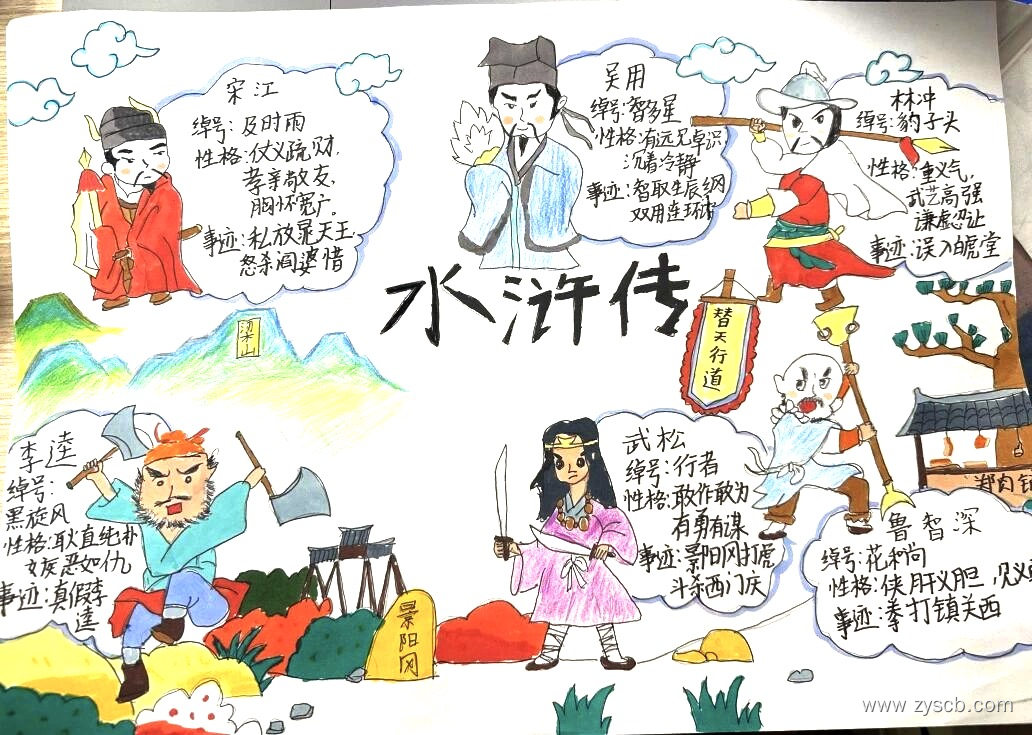 宋江
绰号:及时雨
性格:仗义疏财,
孝亲敬友,
胸怀宽广。
事迹:私放晁天王,
怒杀阎婆惜
吴用
绰号:智多星
性格:有远见卓识,
沉着冷静
事迹:智取生辰纲
双用连环计
林冲
绰号:豹子头
性格:重义气,
武艺高强
谦虚忍让
事迹:误入白虎堂
水浒传
替天行道
梁山
李逵
绰号:
黑旋风
性格:耿直纯朴
嫉恶如仇
事迹:真假李
逵
景阳冈
武松
绰号:行者
性格:敢作敢为
有勇有谋
事迹:景阳冈打虎
斗杀西门庆
郑肉铺
鲁智深
绰号:花和尚
性格:侠肝义胆,见义
事迹:拳打镇关西
www.zyscb.com